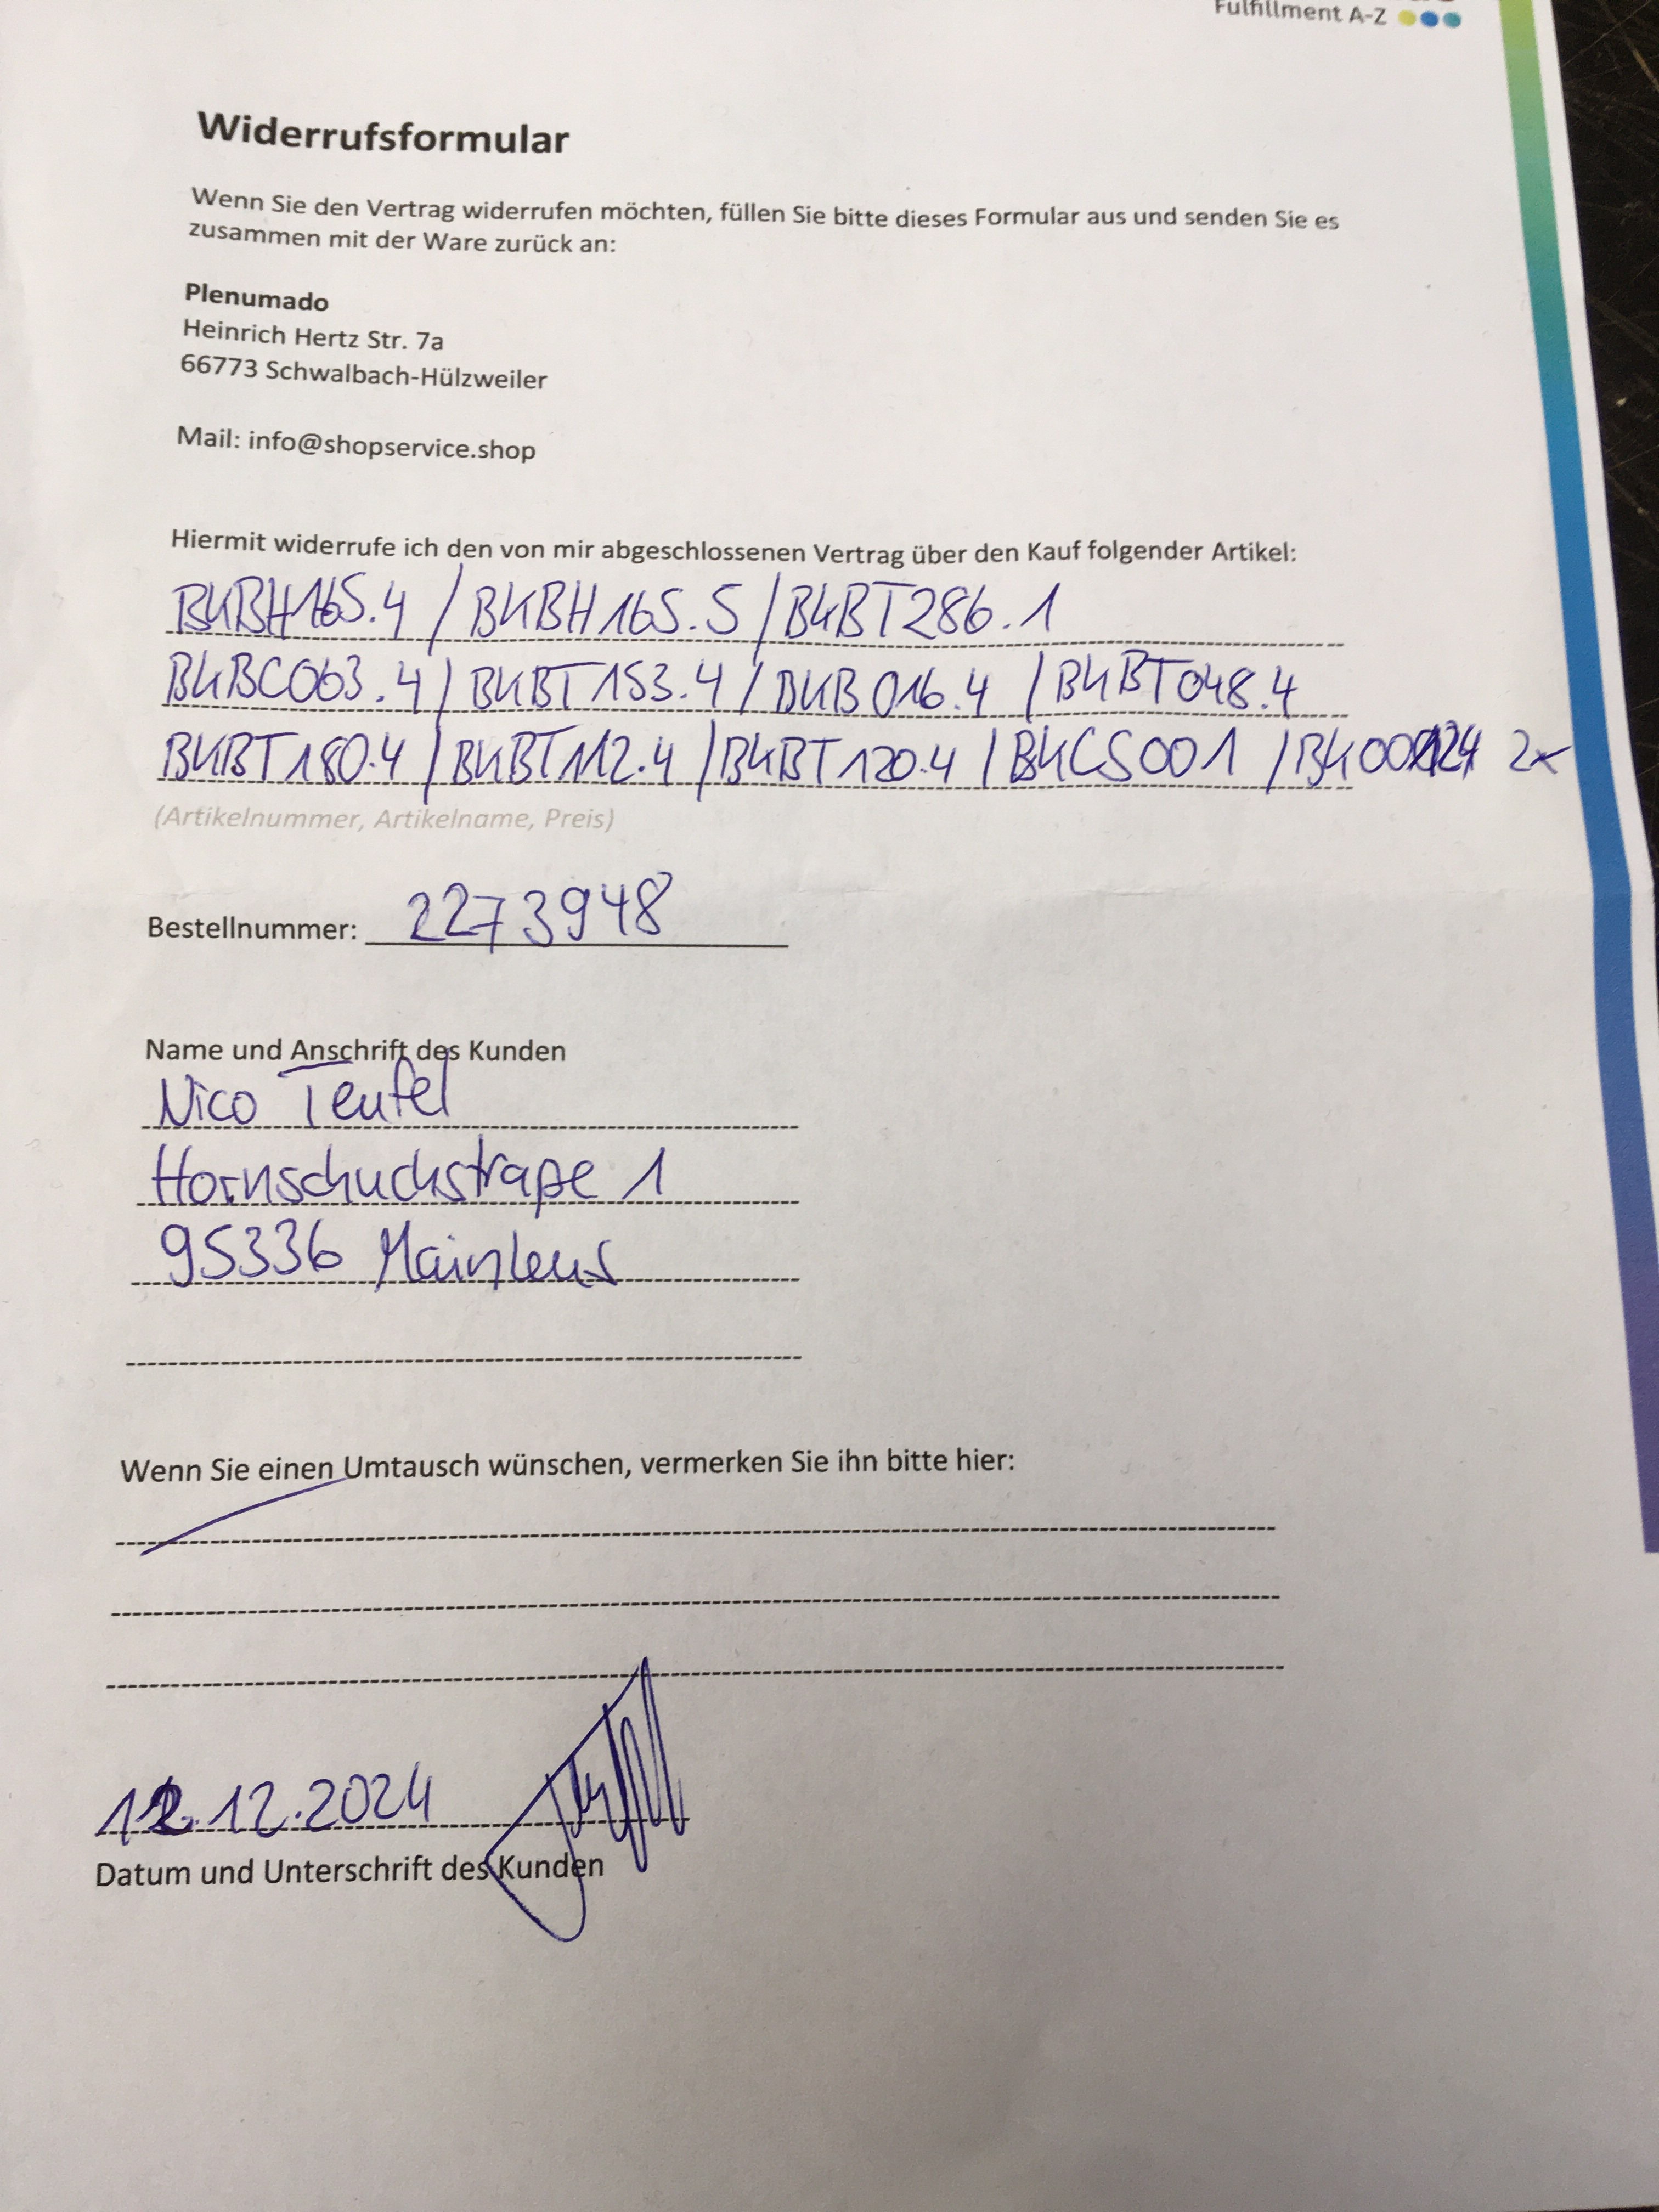 Fulfillment A-Z
Widerrufsformular
Wenn Sie den Vertrag widerrufen möchten, füllen Sie bitte dieses Formular aus und senden Sie es
zusammen mit der Ware zurück an:
Plenumado
Heinrich Hertz Str. 7a
66773 Schwalbach-Hülzweiler
Mail: info@shopservice.shop
Hiermit widerrufe ich den von mir abgeschlossenen Vertrag über den Kauf folgender Artikel:
BKBH165.4 / BKBH165.5 / BKBT286.1
BKBC063.4 / BKBT153.4 / BKB016.4 / BKBT048.4
BKBT180.4 / BKBT112.4 / BKBT120.4 / BKCS001 / 2x
(Artikelnummer, Artikelname, Preis)
Bestellnummer: 2273948
Name und Anschrift des Kunden
Nico Teufel
Hornschuchstraße 1
95336 Mainleus
Wenn Sie einen Umtausch wünschen, vermerken Sie ihn bitte hier:
12.12.2024
Datum und Unterschrift des Kunden